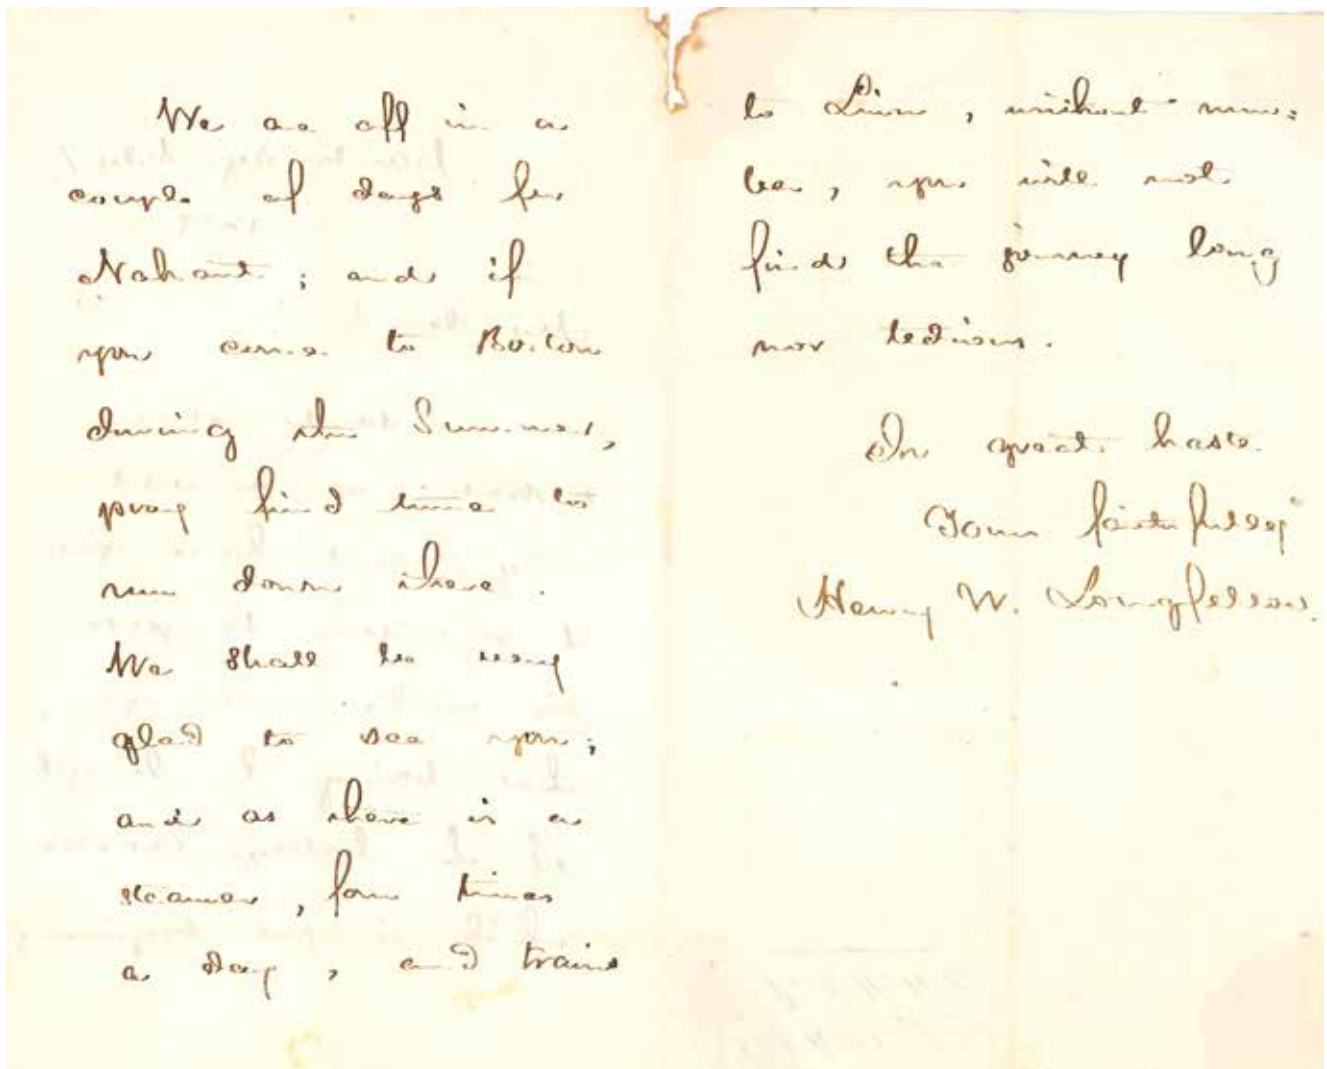 We are off in a
couple of days for
Nahant; and if
you come to Boston
during the Summer,
pray find time to
run down there.
We shall be very
glad to see you;
and as there is a
steamer, four times
a day, and trains
to Linn, without num=
ber, you will not
find the journey long
nor tedious.
In great haste
Yours faithfully
Henry W. Longfellow.